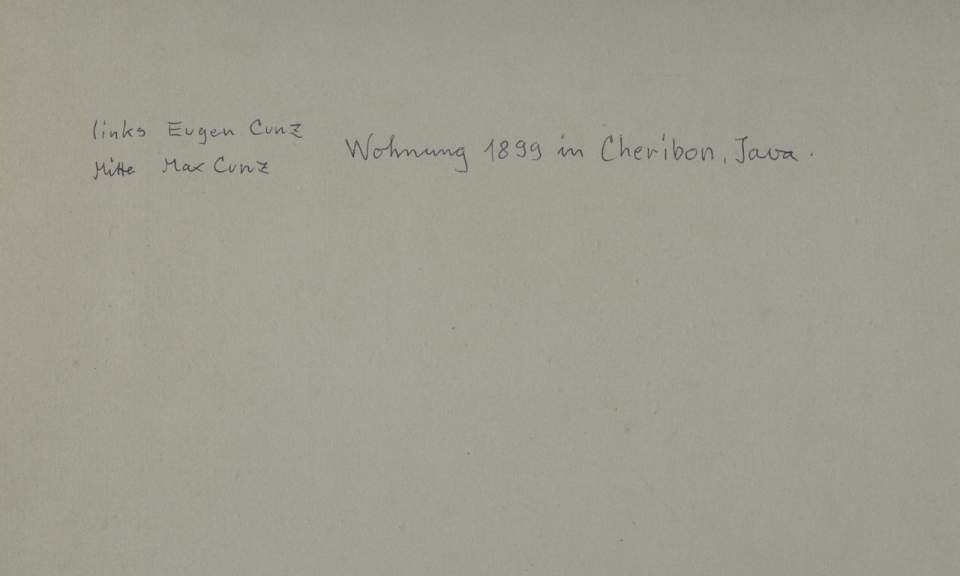 links Eugen Cunz
Mitte Max Cunz
Wohnung 1899 in Cheribon, Java.